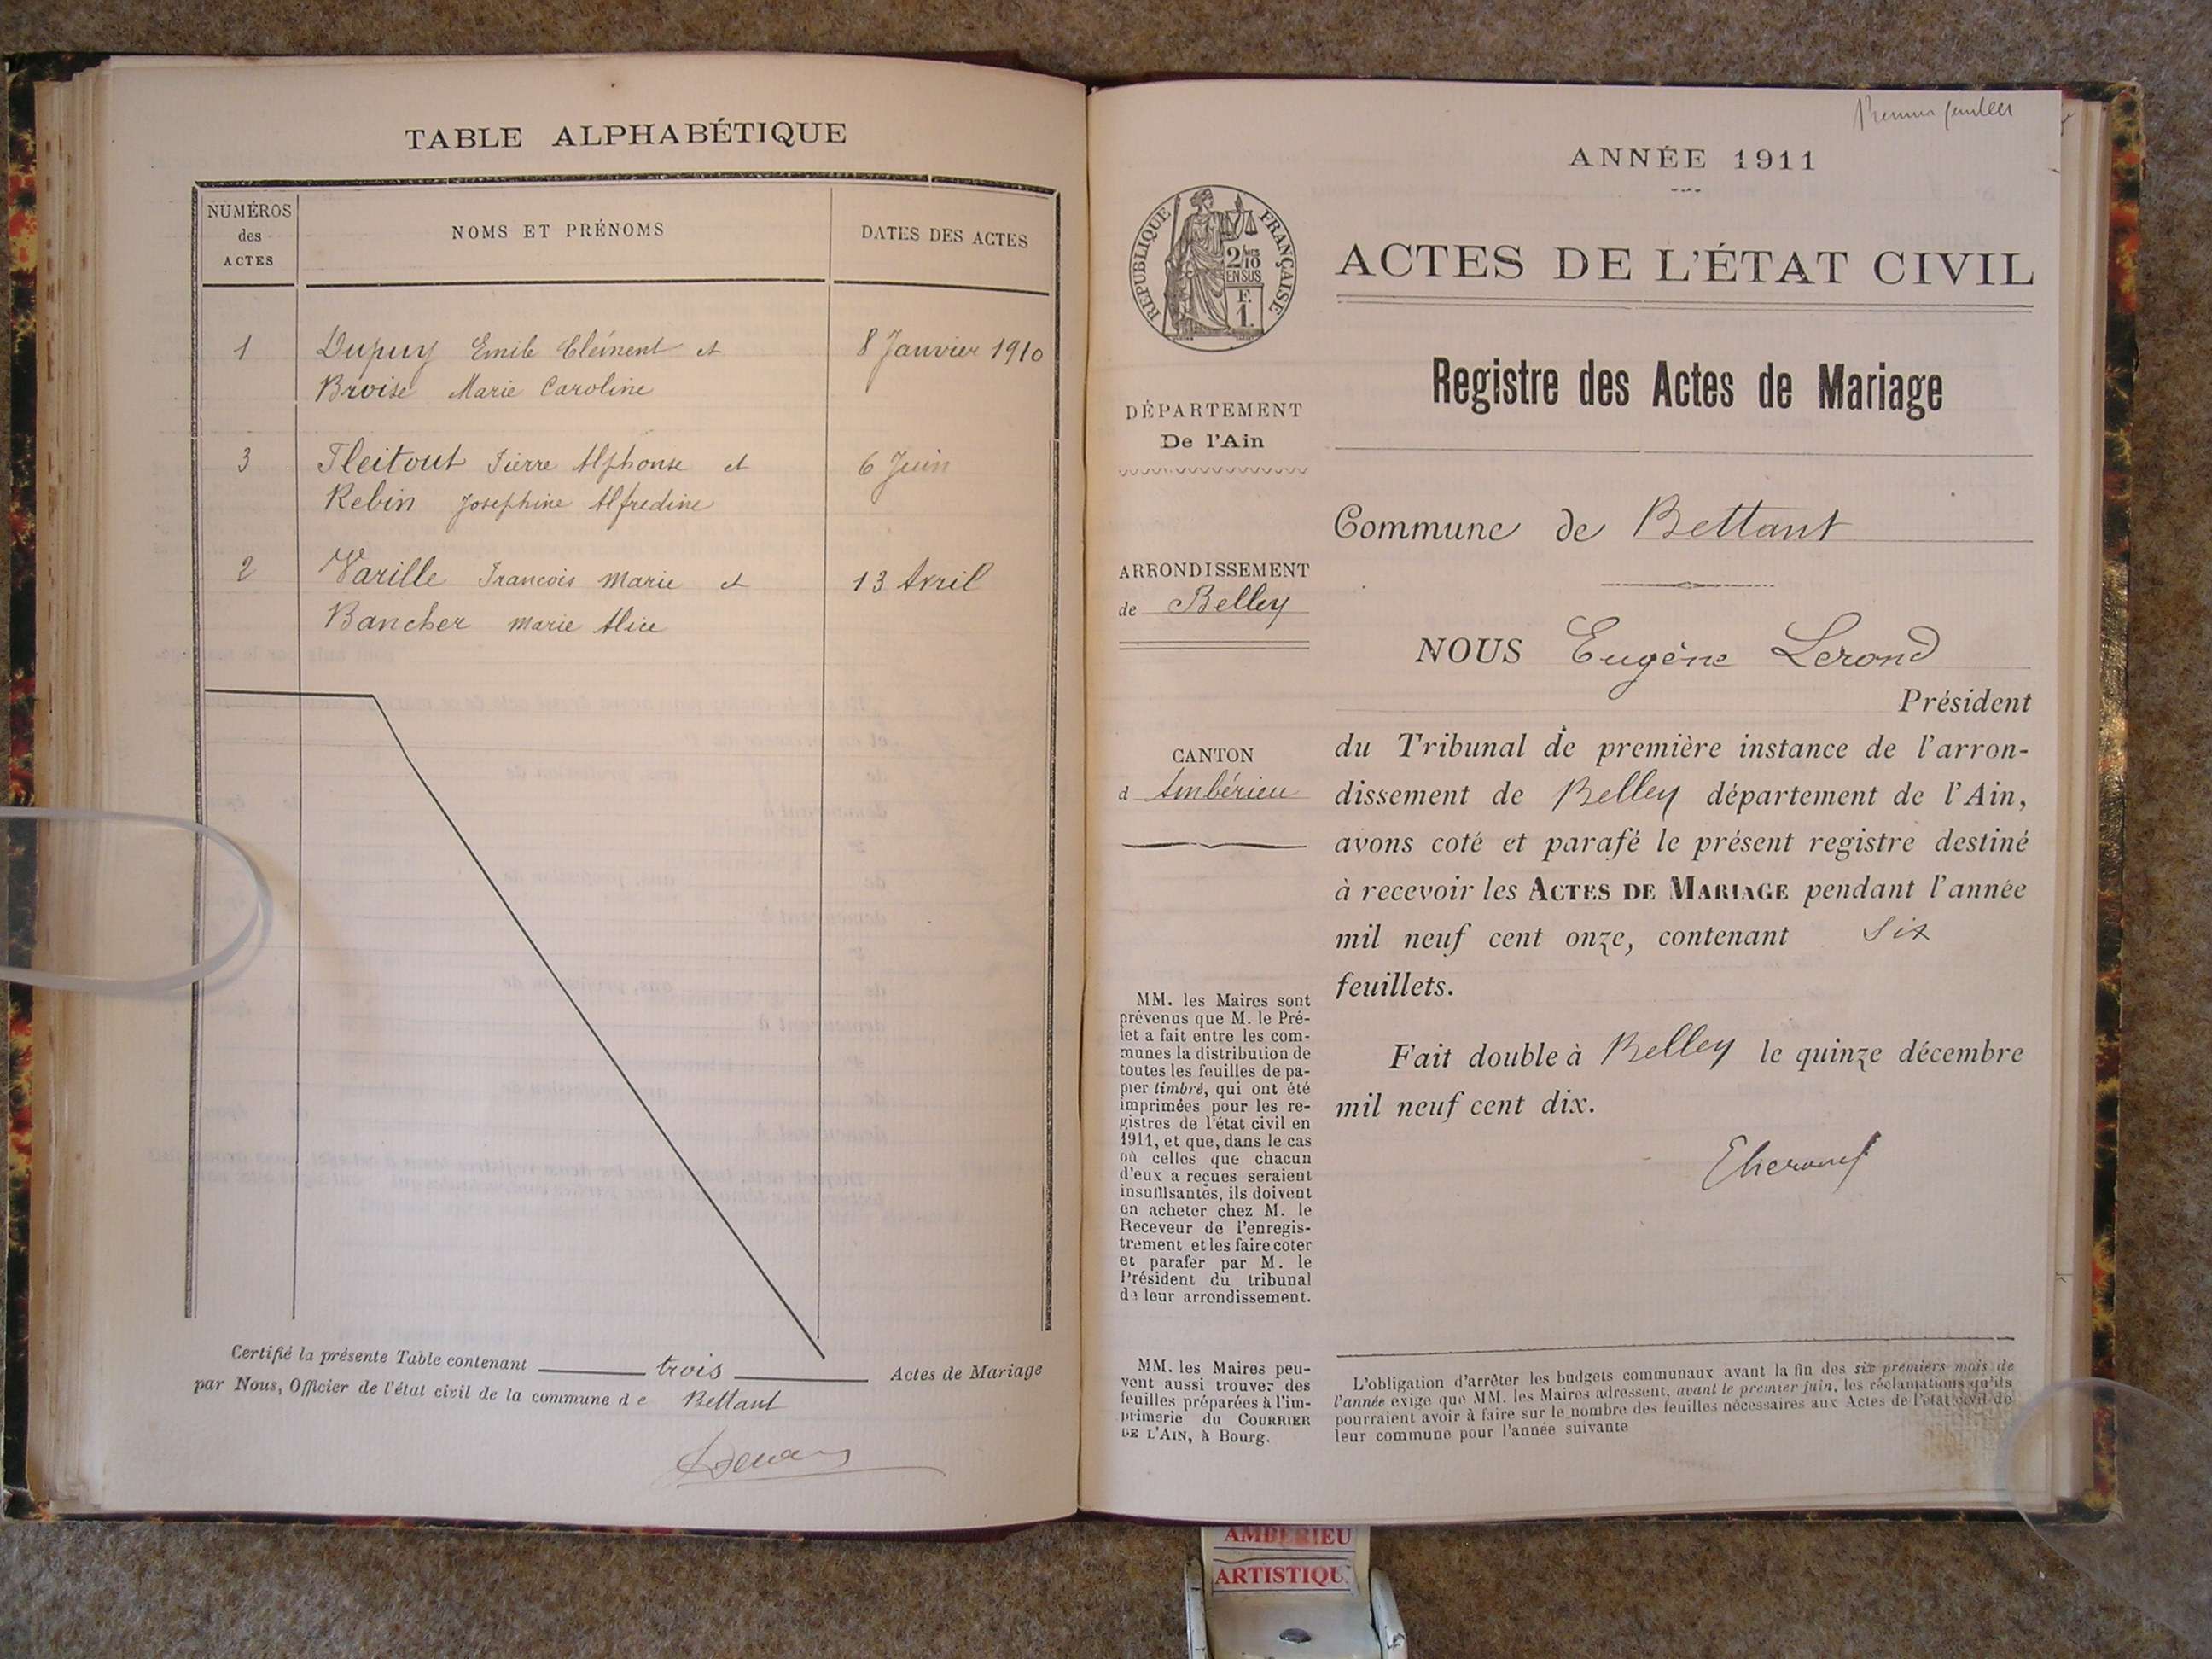 TABLE ALPHABÉTIQUE
NUMÉROS
des
ACTES
NOMS ET PRÉNOMS
DATES DES ACTES
1 Dupuy Emile Clément et 8 Janvier 1910
Broise Marie Caroline
3 Fleitout Pierre Alphonse et 6 Juin
Rebin Joséphine Alfredine
2 Varille Francois Marie et 13 Avril
Bancher Marie Alice
Certifié la présente Table contenant trois Actes de Mariage
par Nous, Officier de l'état civil de la commune de Bettant
Premier feuillet
ANNÉE 1911
RÉPUBLIQUE FRANÇAISE
2/10
EN SUS
F.
1.
ACTES DE L'ÉTAT CIVIL
Registre des Actes de Mariage
DÉPARTEMENT
De l'Ain
ARRONDISSEMENT
de Belley
CANTON
d Ambérieu
MM. les Maires sont
prévenus que M. le Pré-
fet a fait entre les com-
munes la distribution de
toutes les feuilles de pa-
pier timbré, qui ont été
imprimées pour les re-
gistres de l'état civil en
1911, et que, dans le cas
où celles que chacun
d'eux a reçues seraient
insuffisantes, ils doivent
en acheter chez M. le
Receveur de l'enregis-
trement et les faire coter
et parafer par M. le
Président du tribunal
de leur arrondissement.
MM. les Maires peu-
vent aussi trouver des
feuilles préparées à l'im-
primerie du COURRIER
DE L'AIN, à Bourg.
Commune de Bettant
NOUS Eugène Lerond
Président
du Tribunal de première instance de l'arron-
dissement de Belley département de l'Ain,
avons coté et parafé le présent registre destiné
à recevoir les ACTES DE MARIAGE pendant l'année
mil neuf cent onze, contenant Six
feuillets.
Fait double à Belley le quinze décembre
mil neuf cent dix.
L'obligation d'arrêter les budgets communaux avant la fin des six premiers mois de
l'année exige que MM. les Maires adressent, avant le premier juin, les réclamations qu'ils
pourraient avoir à faire sur le nombre des feuilles nécessaires aux Actes de l'état civil de
leur commune pour l'année suivante
AMBERIEU
ARTISTIQU